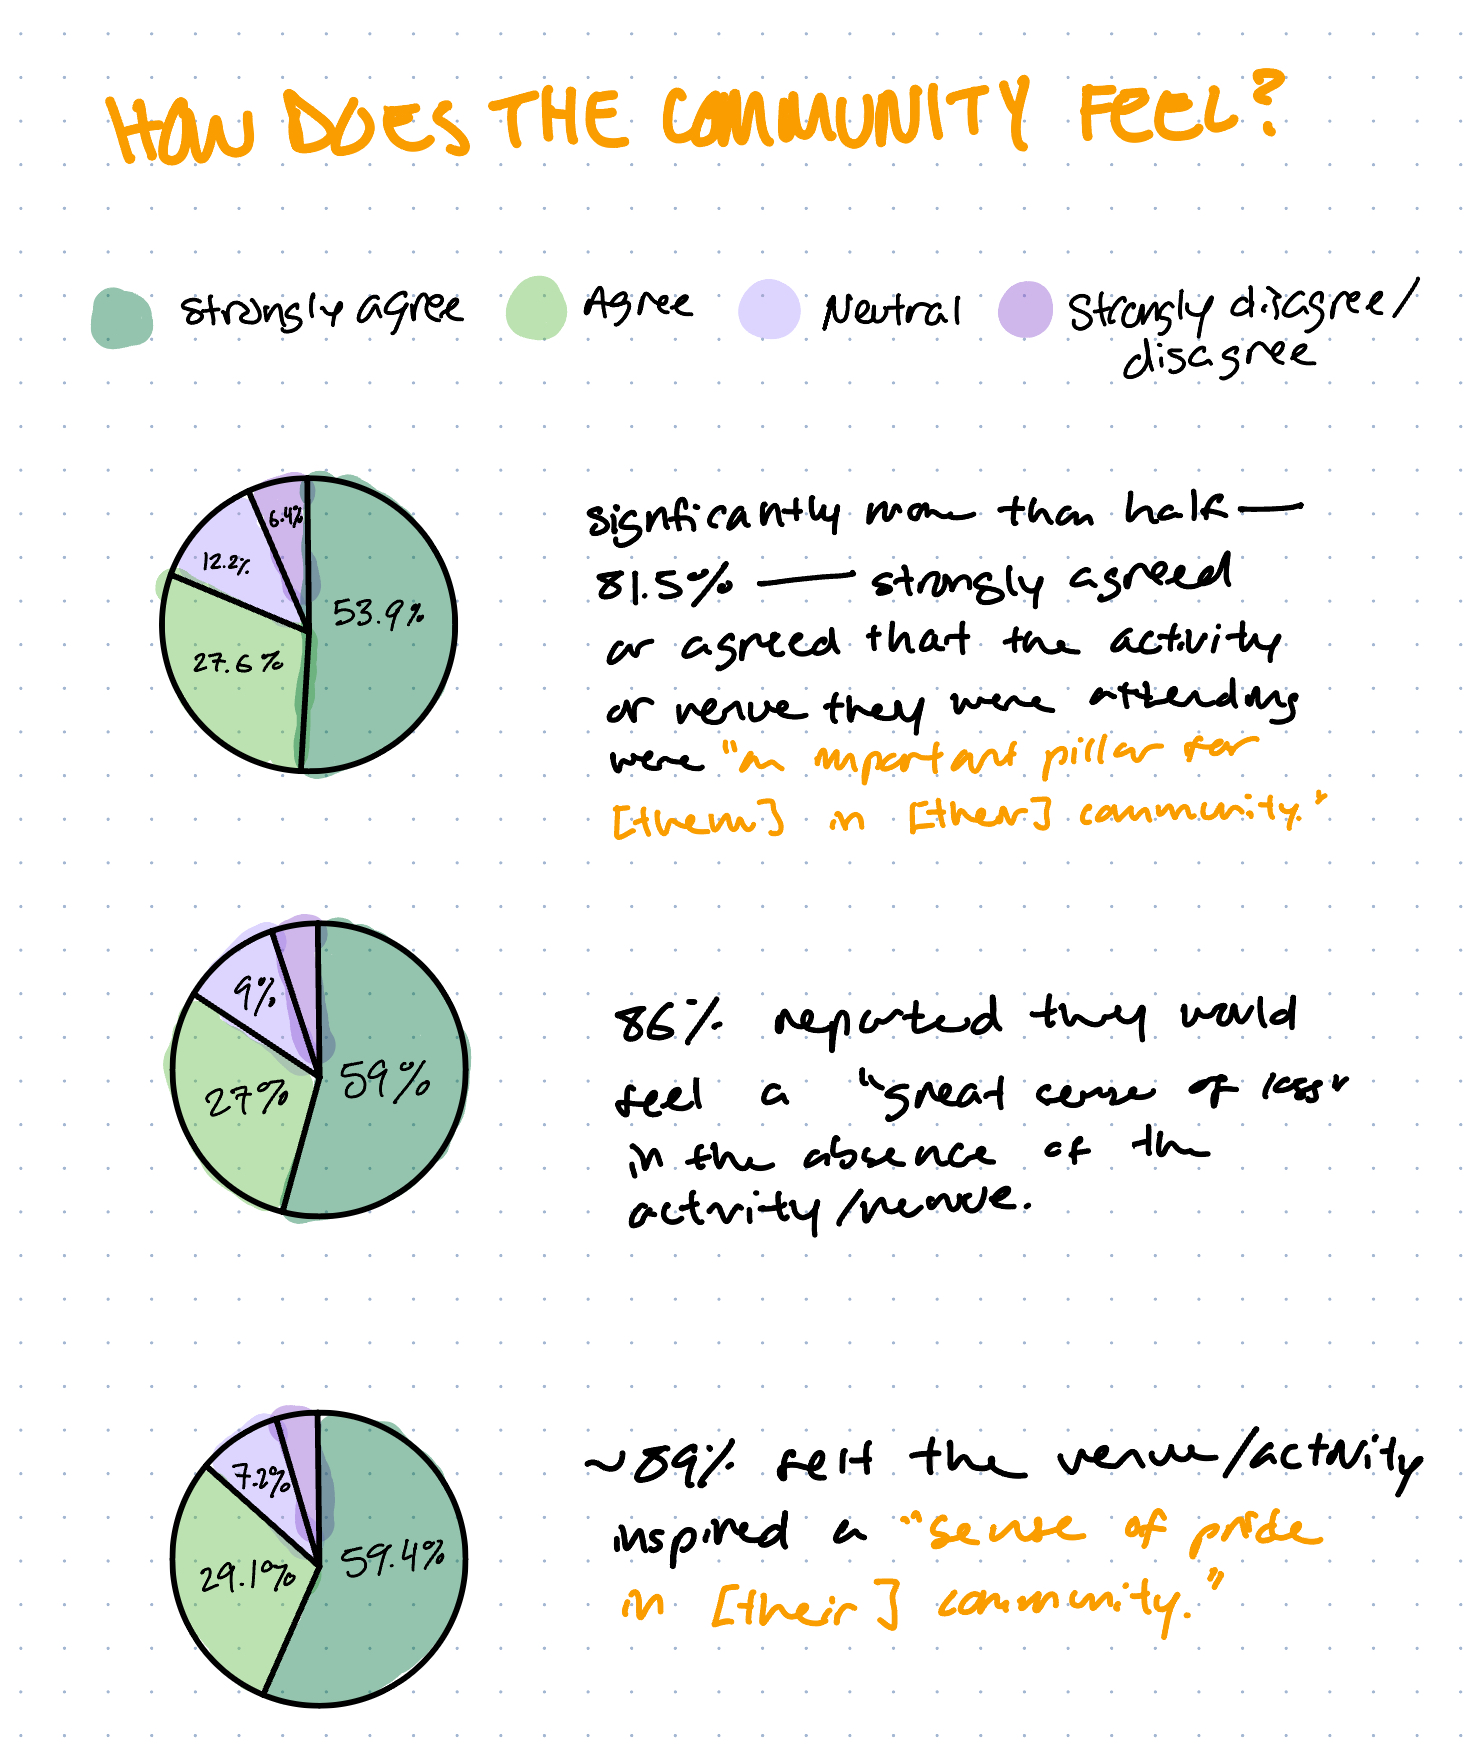 HOW DOES THE COMMUNITY FEEL?
strongly agree
Agree
Neutral
Strongly disagree/
disagree
6.4%
12.2%
53.9%
27.6%
signficantly more than half —
81.5% — strongly agreed
or agreed that the activity
or venue they were attending
were "an important pillar for
[them] in [their] community."
9%
59%
27%
86% reported they would
feel a "great sense of loss"
in the absence of the
activity/venue.
7.2%
59.4%
29.1%
~89% felt the venue/activity
inspired a "sense of pride
in [their] community."